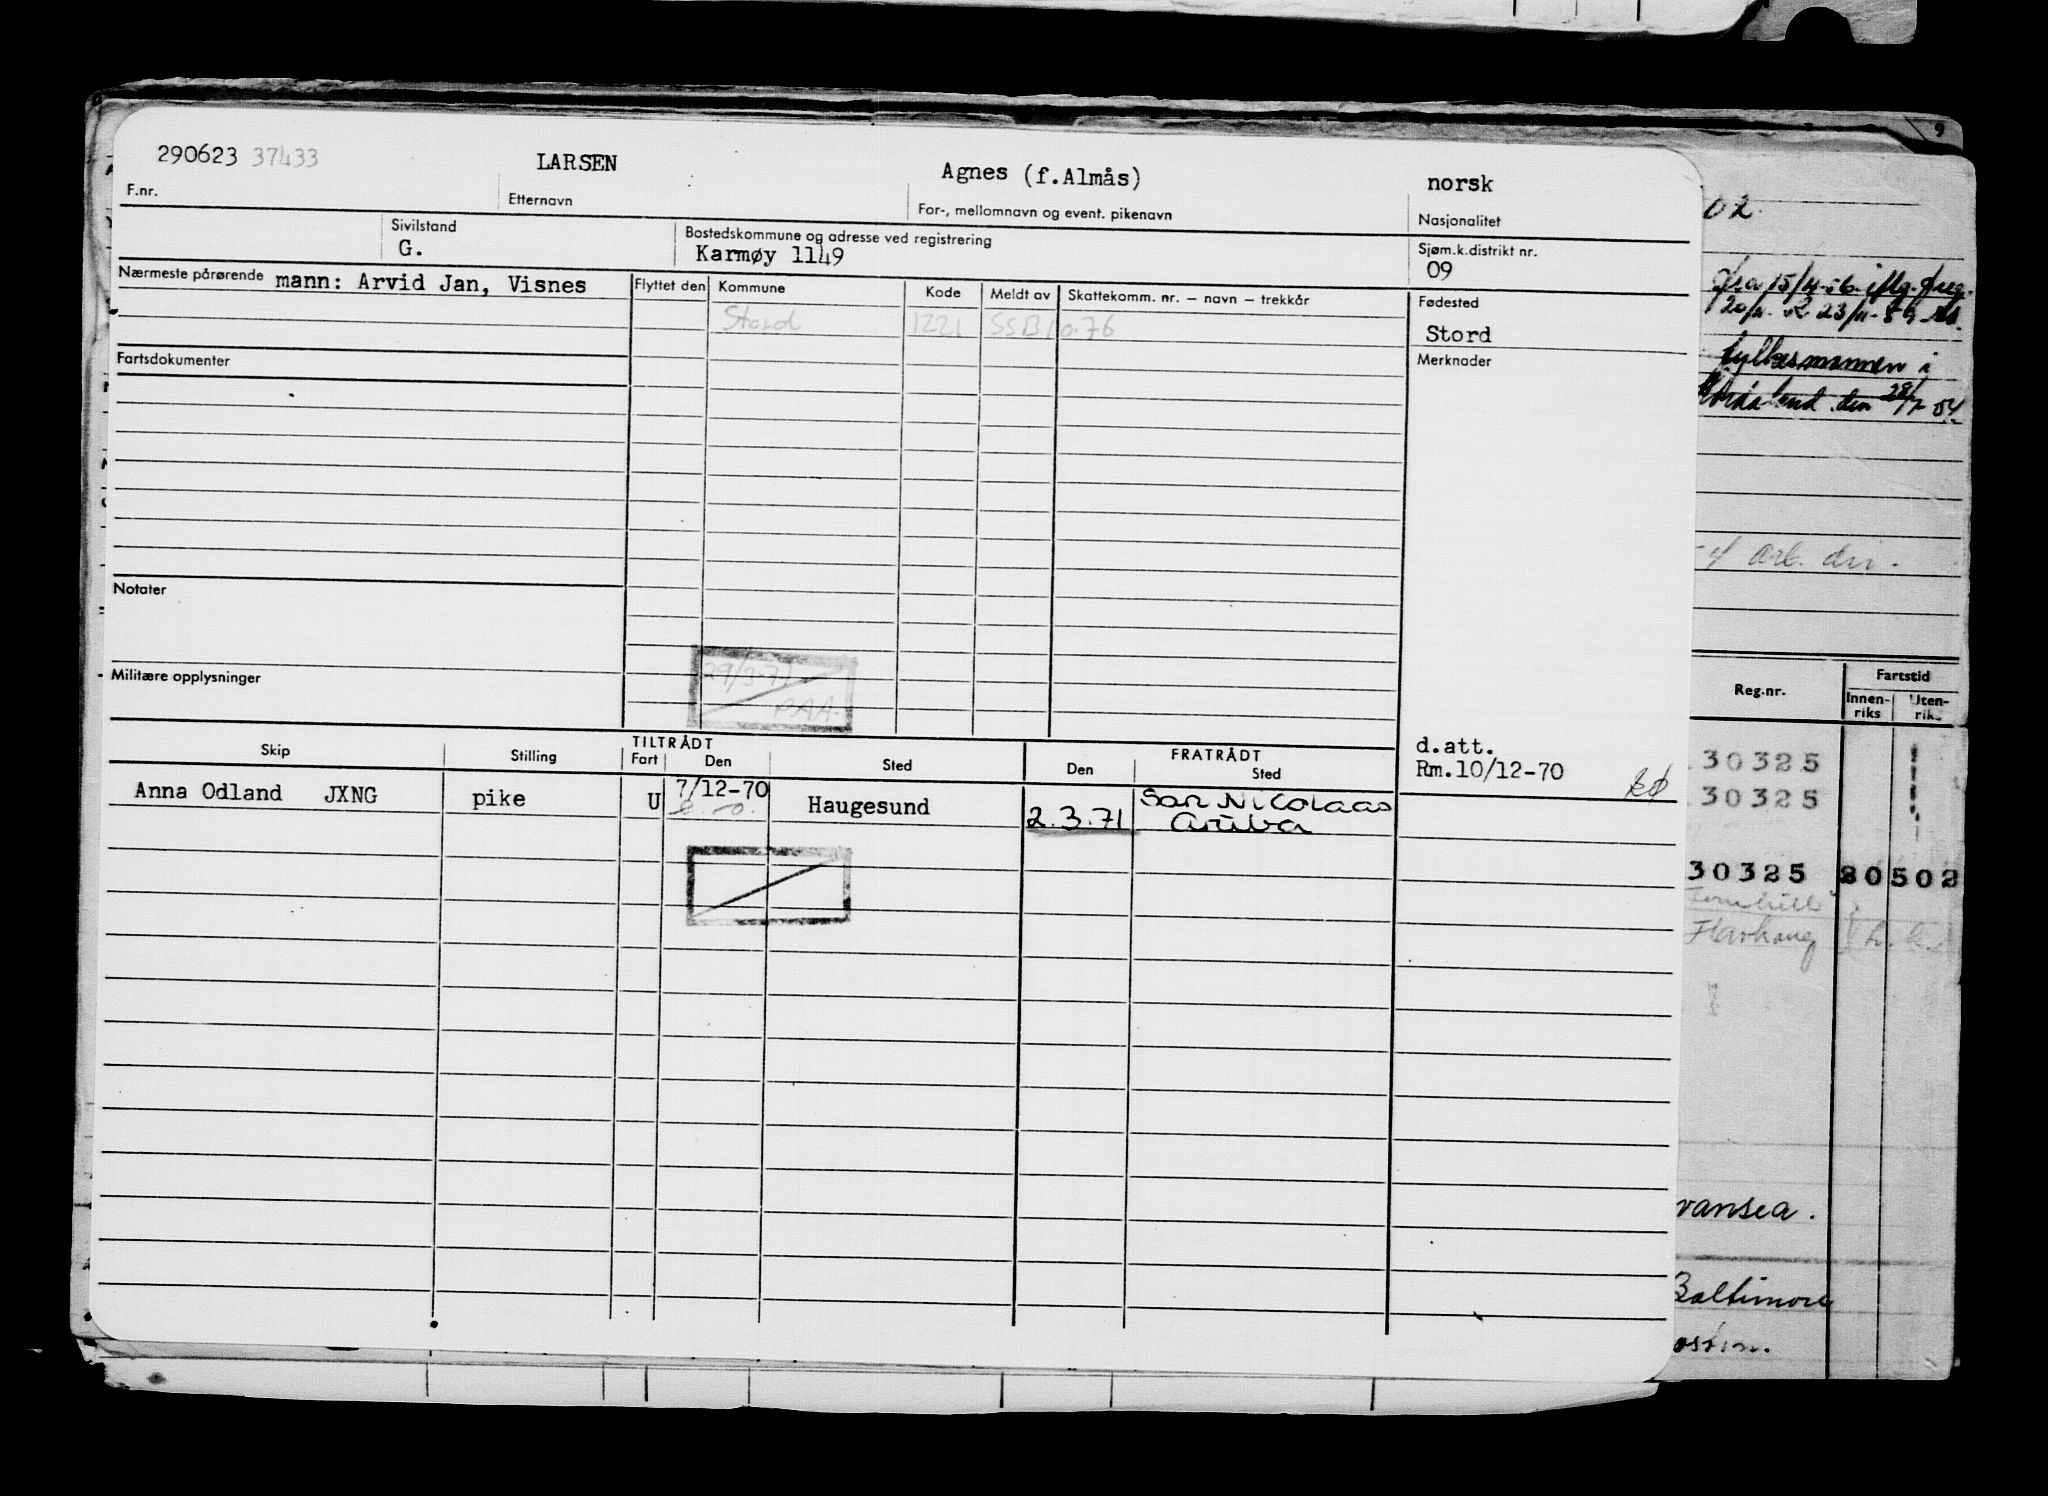 290623 37433 LARSEN Agnes (f.Almås) norsk
F.nr. Etternavn For-, mellomnavn og event. pikenavn Nasjonalitet
Sivilstand Bostedskommune og adresse ved registrering Sjøm.k.distrikt nr.
G. Karmøy 1149 09
Nærmeste pårørende mann: Arvid Jan, Visnes Flyttet den Kommune Kode Meldt av Skattekomm. nr. – navn – trekkår Fødested
Stord 1221 SSB 10.76 Stord
Fartsdokumenter Merknader
Notater
Militære opplysninger
29/3-71
BAA.
TILTRÅDT FRATRÅDT d.att.
Skip Stilling Fart Den Sted Den Sted Rm.10/12-70 kø
Anna Odland JXNG pike U 7/12-70 Haugesund 2.3.71 San Nicolaas
Aruba
9
02
fra 15/4-56 iflg. freg.
20/11- 23/11-59
fylkesmannen i
den 28/7 54
arb. dir.
Reg.nr. Fartstid
Innen-
riks Uten-
riks
30325
30325
30325 20502
vansea.
Baltimore